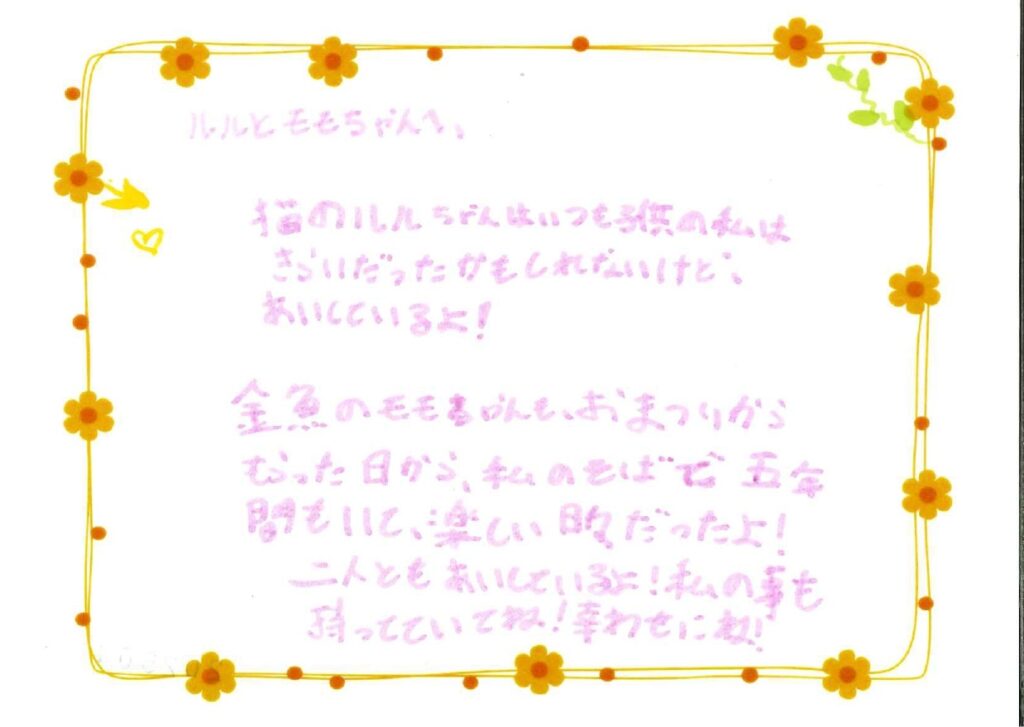 ルルとモモちゃんへ、
猫のルルちゃんはいつも子供の私は
きらいだったかもしれないけど、
あいしているよ!
金魚のモモちゃんも、おまつりから
もらった日から、私のそばで五年
間もいて、楽しい日々だったよ!
二人ともあいしているよ!私の事も
待ってていてね!幸わせにね!